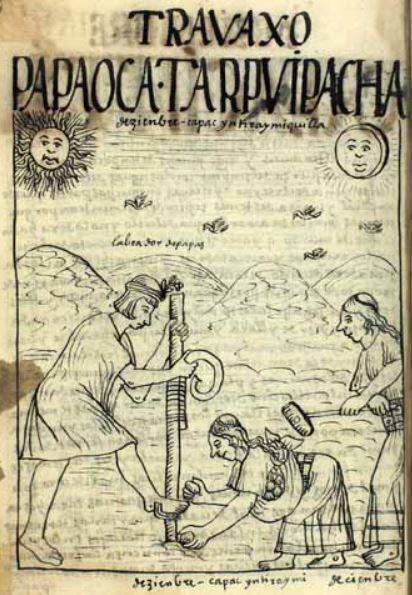 TRAVAXO
PAPAOCA·TARPVIPACHA
dezienbre - capac yntiraymiquilla
labrador de papas
dezienbre - capac yntiraymi deciembre